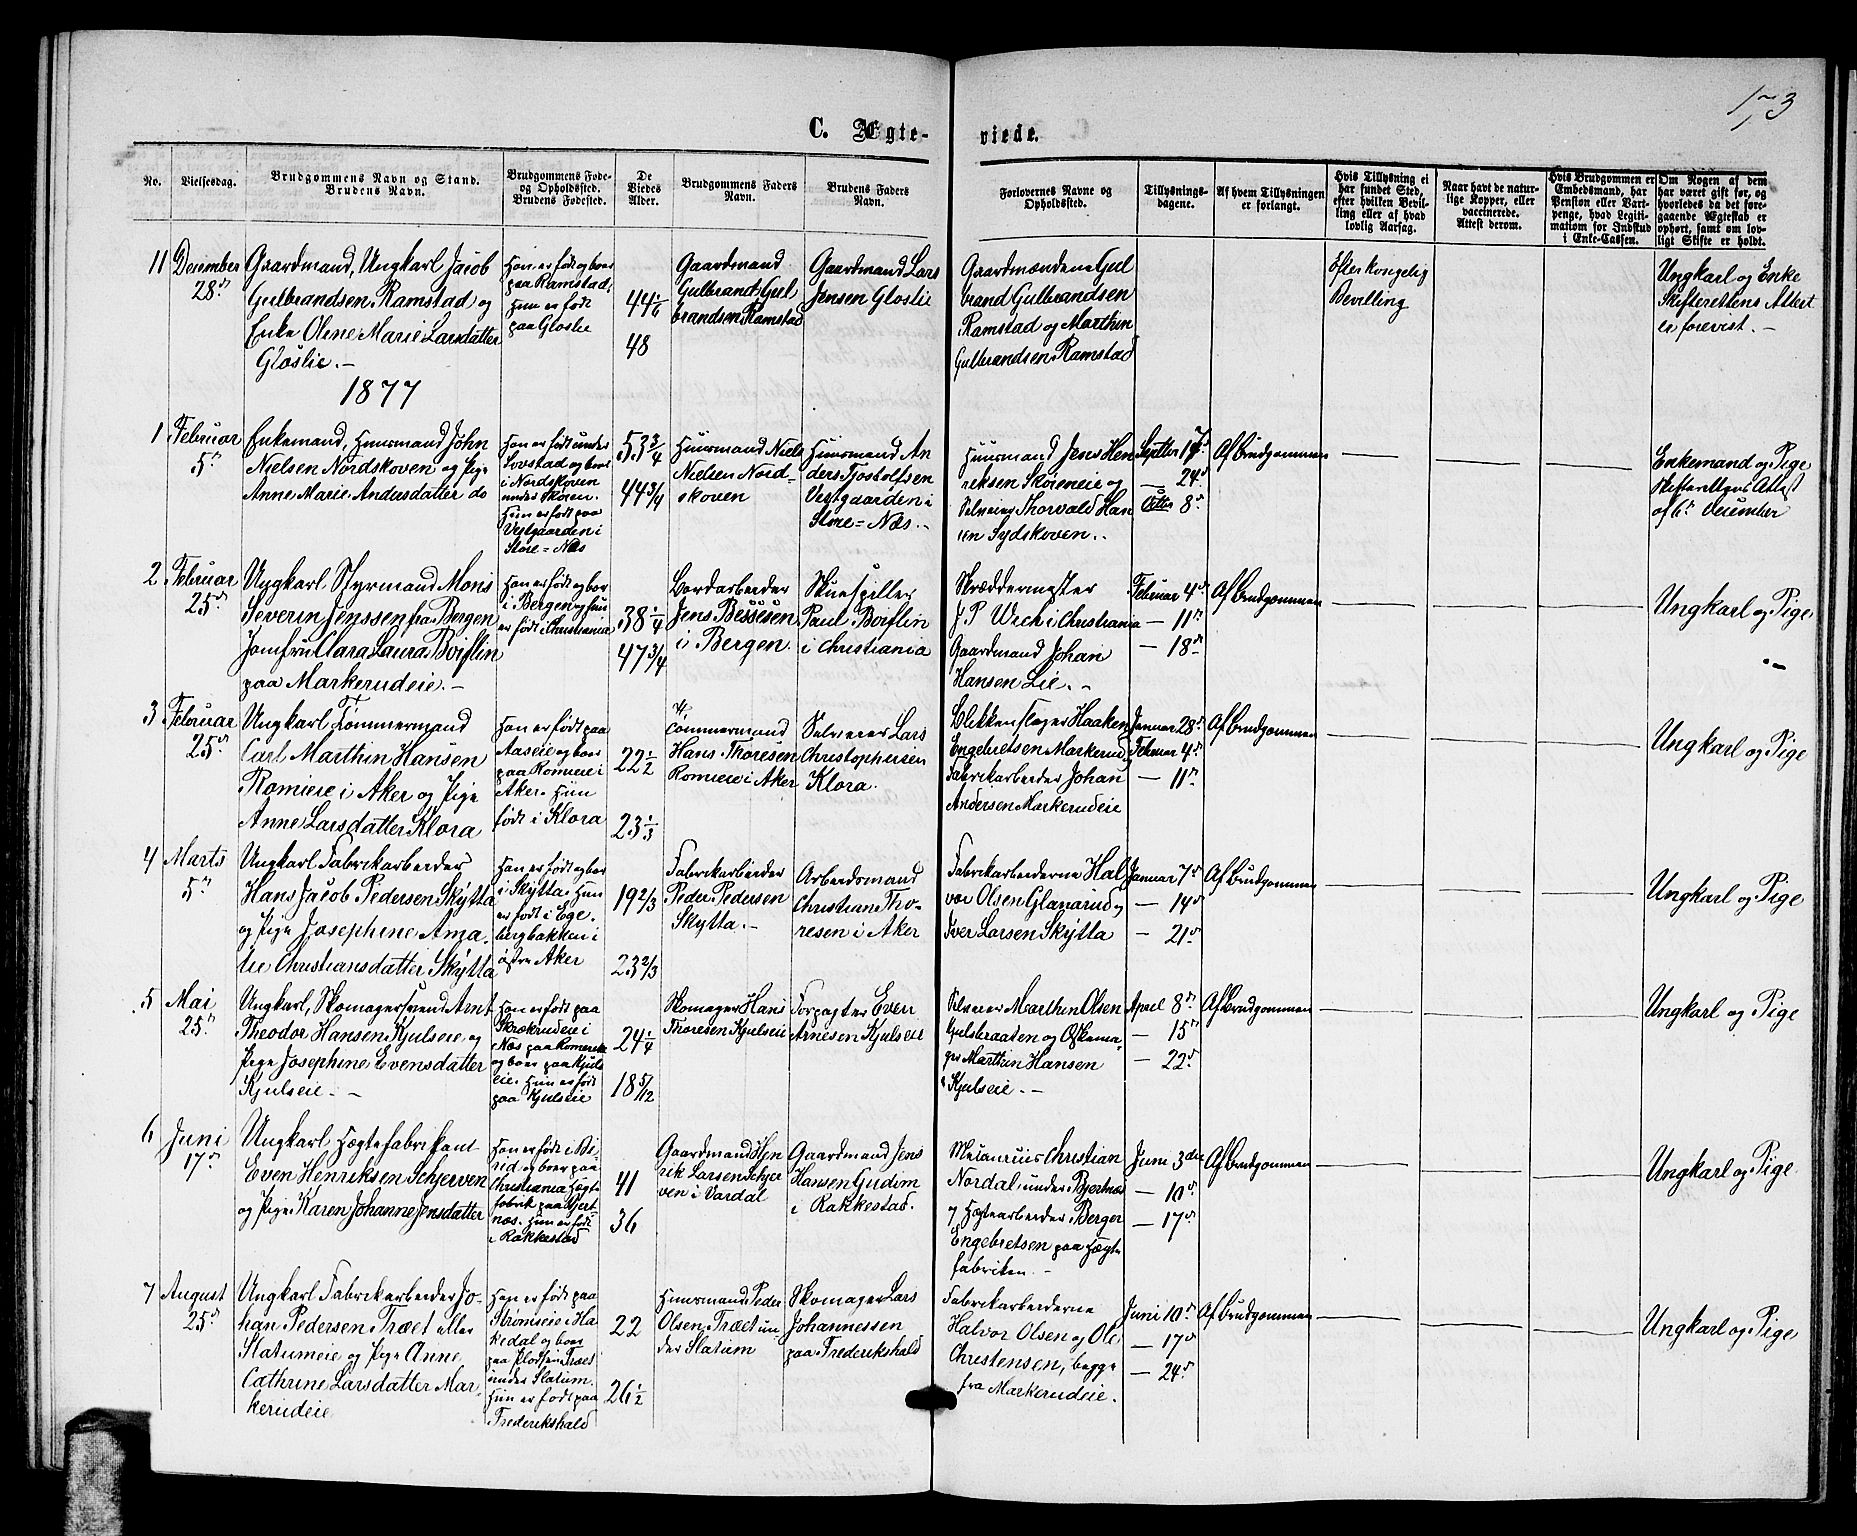 173
C. Ægte-
viede.
No.
Vielsesdag.
Brudgommens Navn og Stand.
Brudens Navn.
Brudgommens Føde-
og Opholdssted.
Brudens Fødested.
De
Viedes
Alder.
Brudgommens Faders
Navn.
Brudens Faders
Navn.
Forlovernes Navne og
Opholdssted.
Tillysnings-
dagene.
Af hvem Tillysningen
er forlangt.
Hvis Tillysning ei
har fundet Sted,
efter hvilken Bevil-
ling eller af hvad
lovlig Aarsag.
Naar havt de natur-
lige Kopper, eller
vaccinerede.
Attest derom.
Hvis Brudgommen er
Embedsmand, har
Pension eller Vart-
penge, hvad Legiti-
mation for Indskud
i Enke-Cassen.
Om Nogen af dem
har været gift før, og
hvorledes da det fore-
gaaende Ægteskab er
ophørt, samt om lov-
ligt Skifte er holdt.
11
December
28
Gaardmand, Ungkarl Jacob
Gulbrandsen Ramstad og
Enke Olene Marie Larsdatter
Gloslie. -
Han er født og boer
paa Ramstad,
Hun er født
paa Gloslie
44 1/6
48
Gaardmand
Gulbrand Gul
brandsen Ramstad
Gaardmand Lars
Jensen Gloslie
Gaardmændene Gul
brand Gulbrandsen
Ramstad og Marthin
Gulbrandsen Ramstad
Efter kongelig
Bevilling
Ungkarl og Enke
Skifterettens Attest
er forevist. -
1877
1
Februar
5
Enkemand, Huusmand John
Nielsen Nordskoven og Pige
Anne Marie Andersdatter do
Han er født under
Lovstad og boer
i Nordskoven
under Skøien.
Hun er født paa
Vestgaarden i
Store=Næs
53 3/4
44 3/4
Huusmand Niels
Nielsen Nord-
skoven
Huusmand An
ders Tjostolfsen
Vestgaarden i
Store=Næs. -
Huusmand Jens Hen
riksen Skøieneie og
Selveier Thorvald Han
sen Sydskoven. -
Septbr 17
— 24
Octbr 8
Af Brudgommen
Enkemand og Pige
Skifterettens Attest
af 6 December
2
Februar
25
Ungkarl Styrmand Mons
Severin Jenssen fra Bergen
Jomfru Clara Laura Boiflin
paa Markerudeie. -
Han er født og boer
i Bergen og hun
er født i Christiania
38 1/4
47 3/4
Bordarbeider
Jens Bessesen
i Bergen
Skuespiller
Paul Boiflin
i Christiania
Skræddermester
J P Wich i Christiania
Gaardmand Johan
Hansen Lie. -
Februar 4
— 11
— 18
Af Brudgommen
Ungkarl og Pige
. -
3
Februar
25
Ungkarl Tømmermand
Carl Marthin Hansen
Romieie i Aker og Pige
Anne Larsdatter Klora
Han er født paa
Aaseie og boer
paa Romieie i
Aker. Hun
født i Klora
22 1/2
23 1/3
Tømmermand
Hans Thoresen
Romieie i Aker
Selveier Lars
Christophersen
Klora.
Blikkenslager Haaken
Engebretsen Markerud
Fabrikarbeider Johan
Andersen Markerudeie
Januar 28
Februar 4
— 11
Af Brudgommen
Ungkarl og Pige
4
Marts
5
Ungkarl Fabrikarbeider
Hans Jacob Pedersen Skytta
og Pige Josephine Ama-
lie Christiansdatter Skytta
Han er født og boer
i Skytta, Hun
er født i Ege-
bergbakken i
østre Aker
19 2/3
23 2/3
Fabrikarbeider
Peder Pedersen
Skytta. -
Arbeidsmand
Christian Tho-
resen i Aker
Fabrikarbeiderne Hal
vor Olsen Glanarud og
Iver Larsen Skytta
Januar 7
— 14
— 21
Af Brudgommen
Ungkarl og Pige
5
Mai
25
Ungkarl, Skomagersvend Arnt
Theodor Hansen Kjulseie og
Pige Josephine Evensdatter
Kjulseie. -
Han er født paa
Skrækrudeie i
Næs paa Romerike
og boer paa Kjuls
eie. Hun er født
paa Kjulseie
24 1/4
18 5/12
Skomager Hans
Thoresen Kjulseie
Forpagter Even
Arnesen Kjulseie
Selveier Marthin Olsen
Gulsbraaten og Skoma-
ger Marthin Hansen
Kjulseie. -
April 8
— 15
— 22
Af Brudgommen
Ungkarl og Pige
6
Juni
17
Ungkarl Hægtefabrikant
Even Henriksen Schjerven
og Pige Karen Johanne Jensdatter
Han er født i Bi-
rid og boer paa
Christiania Hægte
fabrik paa Bjert-
næs. Hun er født
i Rakkestad
41
36
Gaardmand Hen
rik Larsen Schjer
ven i Vardal
Gaardmand Jens
Hansen Gudim
i Rakkestad.
Christian
Nordal under Bjertnæs
og Hægtearbeider Berger
Engebretsen paa Hægte
fabriken. -
Juni 3die
— 10
— 17
Af Brudgommen
Ungkarl og Pige
7
August
25
Ungkarl Fabrikarbeider Jo-
han Pedersen Træet eller
Slatumeie og Pige Anne
Cathrine Larsdatter Mar-
kerudeie
Han er født paa
Strømseie i Ha
kedal og boer
paa Pladsen Træet
under Slatum.
Hun er født paa
Frederikshald
22
26 1/2
Huusmand Peder
Olsen Træet un-
der Slatum
Skomager Lars
Johannessen
paa Frederikshald
Fabrikarbeiderne
Halvor Olsen og Ole
Christensen, begge
fra Markerudeie.
Juni 10
— 17
— 24
Af Brudgommen
Ungkarl og Pige